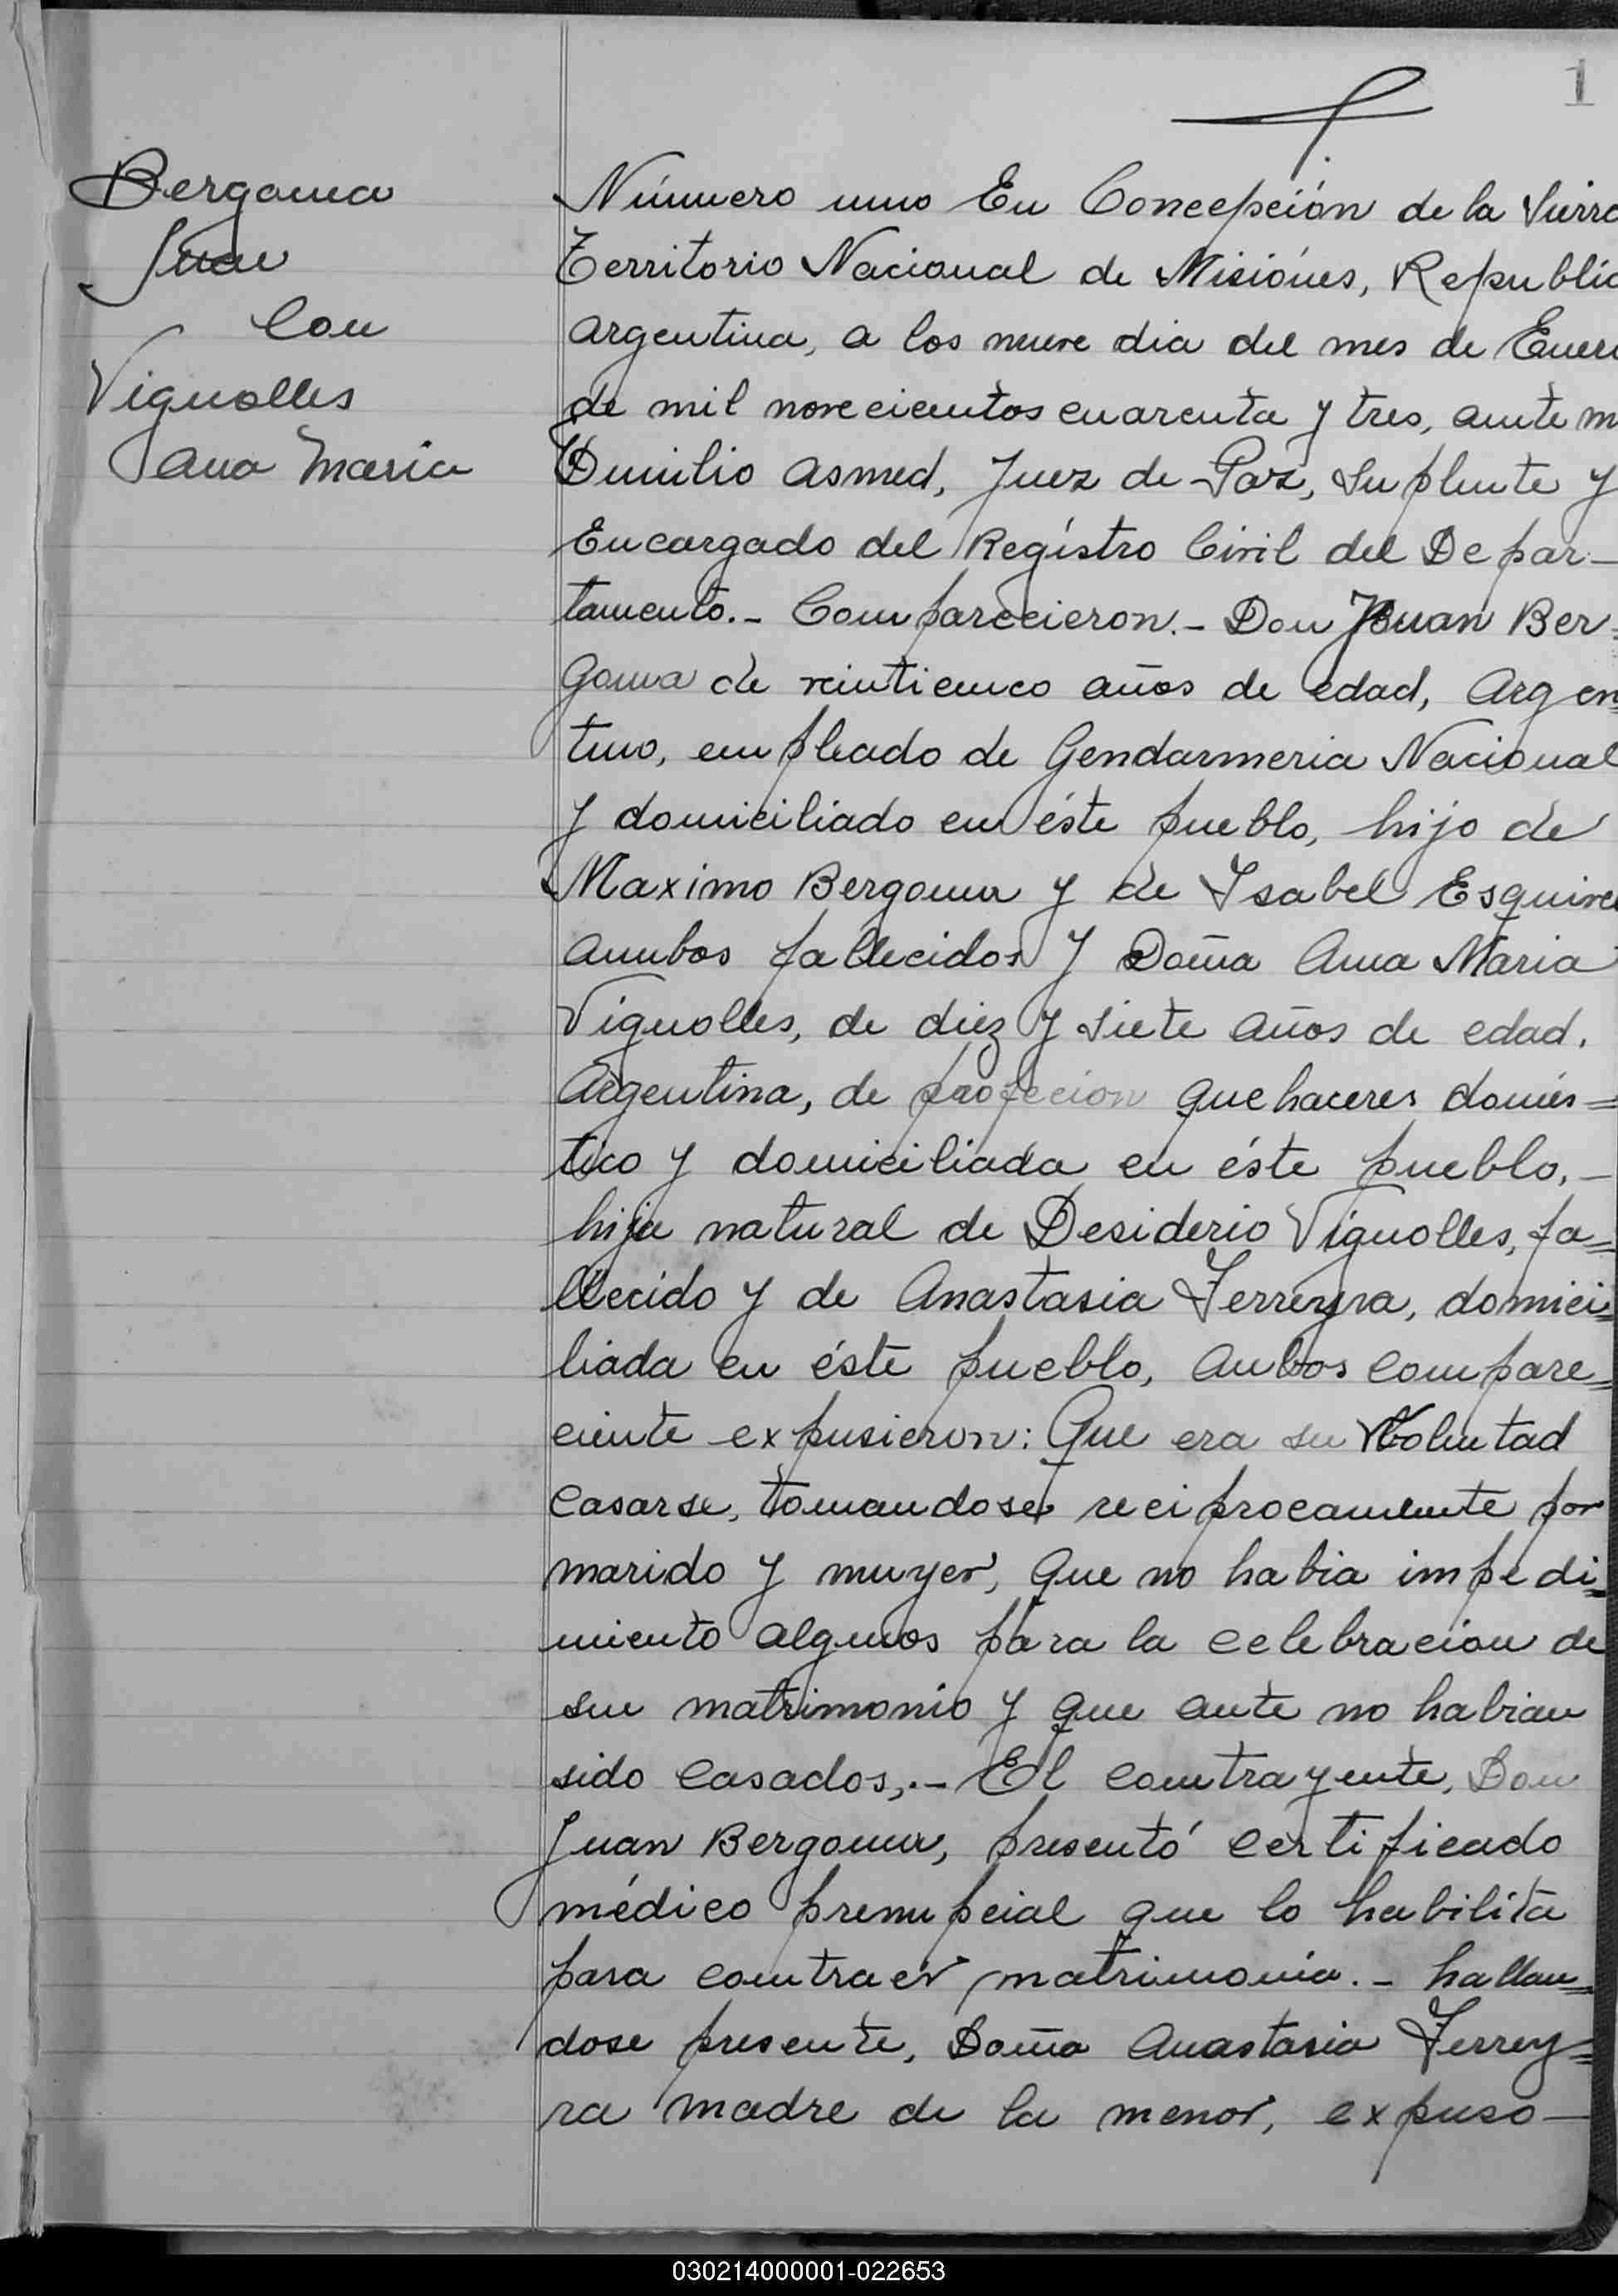 1
Bergoma
Juan
Con
Vignolles
Ana Maria
Número uno En Concepción de la Sierra
Territorio Nacional de Misiónes, Republic
Argentina, a los nueve dia del mes de Enero
de mil novecientos cuarenta y tres, ante m
Duuilio Asmed, Juez de Paz, Suplente y
Encargado del Registro Civil del Depar-
tamento.- Comparecieron.- Don Juan Ber=
goma de veinticinco años de edad, Argen=
tino, empleado de Gendarmeria Nacional
y domiciliado en éste pueblo, hijo de
Maximo Bergoma y de Isabel Esquivel
ambos fallecidos y Doña Ana Maria
Vignolles, de diez y siete años de edad.
Argentina, de profecion quehaceres domés=
tico y domiciliada en éste pueblo,-
hija natural de Desiderio Vignolles, fa=
llecido y de Anastasia Ferreyra, domici=
liada en éste pueblo, Ambos compare=
ciente expusieron: Que era su Voluntad
Casarse, tomandose reciprocamente por
marido y muyer, que no habia impedi=
miento algunos para la celebracion de
su matrimonio y que ante no habian
sido Casados,.- El contrayente, Don
Juan Bergoma, presentó certificado
médico prenupcial que lo habilita
para contraer matrimonio.- hallan=
dose presente, Doña Anastasia Ferrey=
ra madre de la menor, expuso-
030214000001-022653